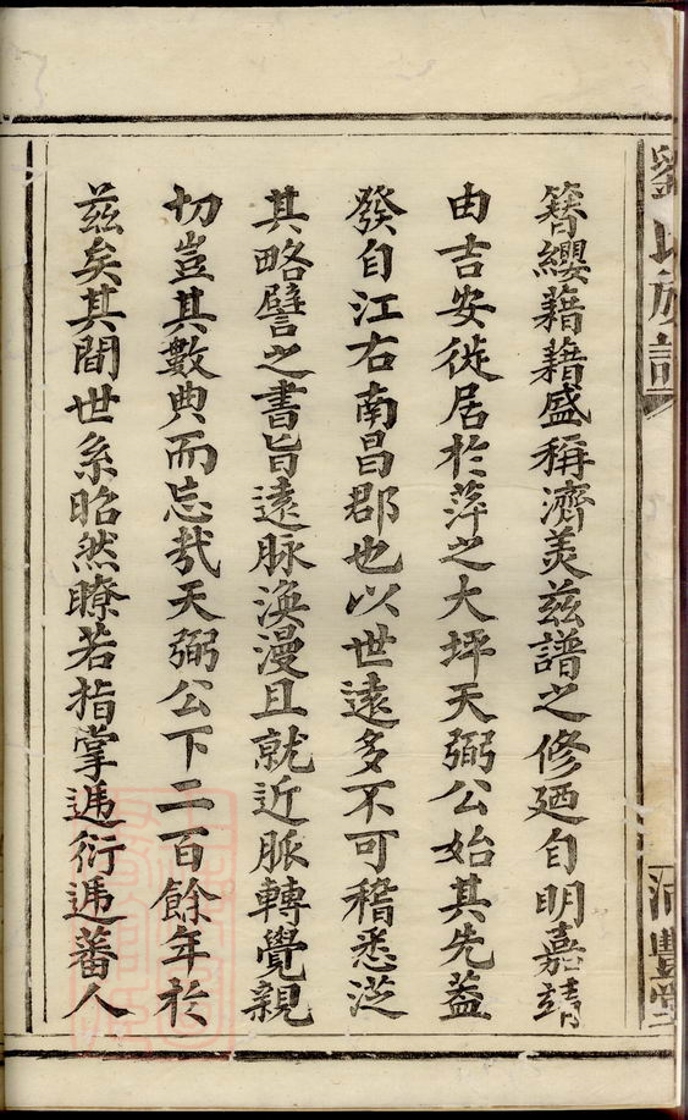 劉氏族譜
豐堂
簪纓藉藉盛稱濟美兹譜之修廼自明嘉靖
由吉安徙居於萍之大坪天弼公始其先蓋
發自江右南昌郡也以世遠多不可稽悉泛
其略譬之書旨遠脉渙漫且就近脈轉覺親
切豈其數典而忘哉天弼公下二百餘年於
兹矣其間世系昭然瞭若指掌遞衍遞蕃人